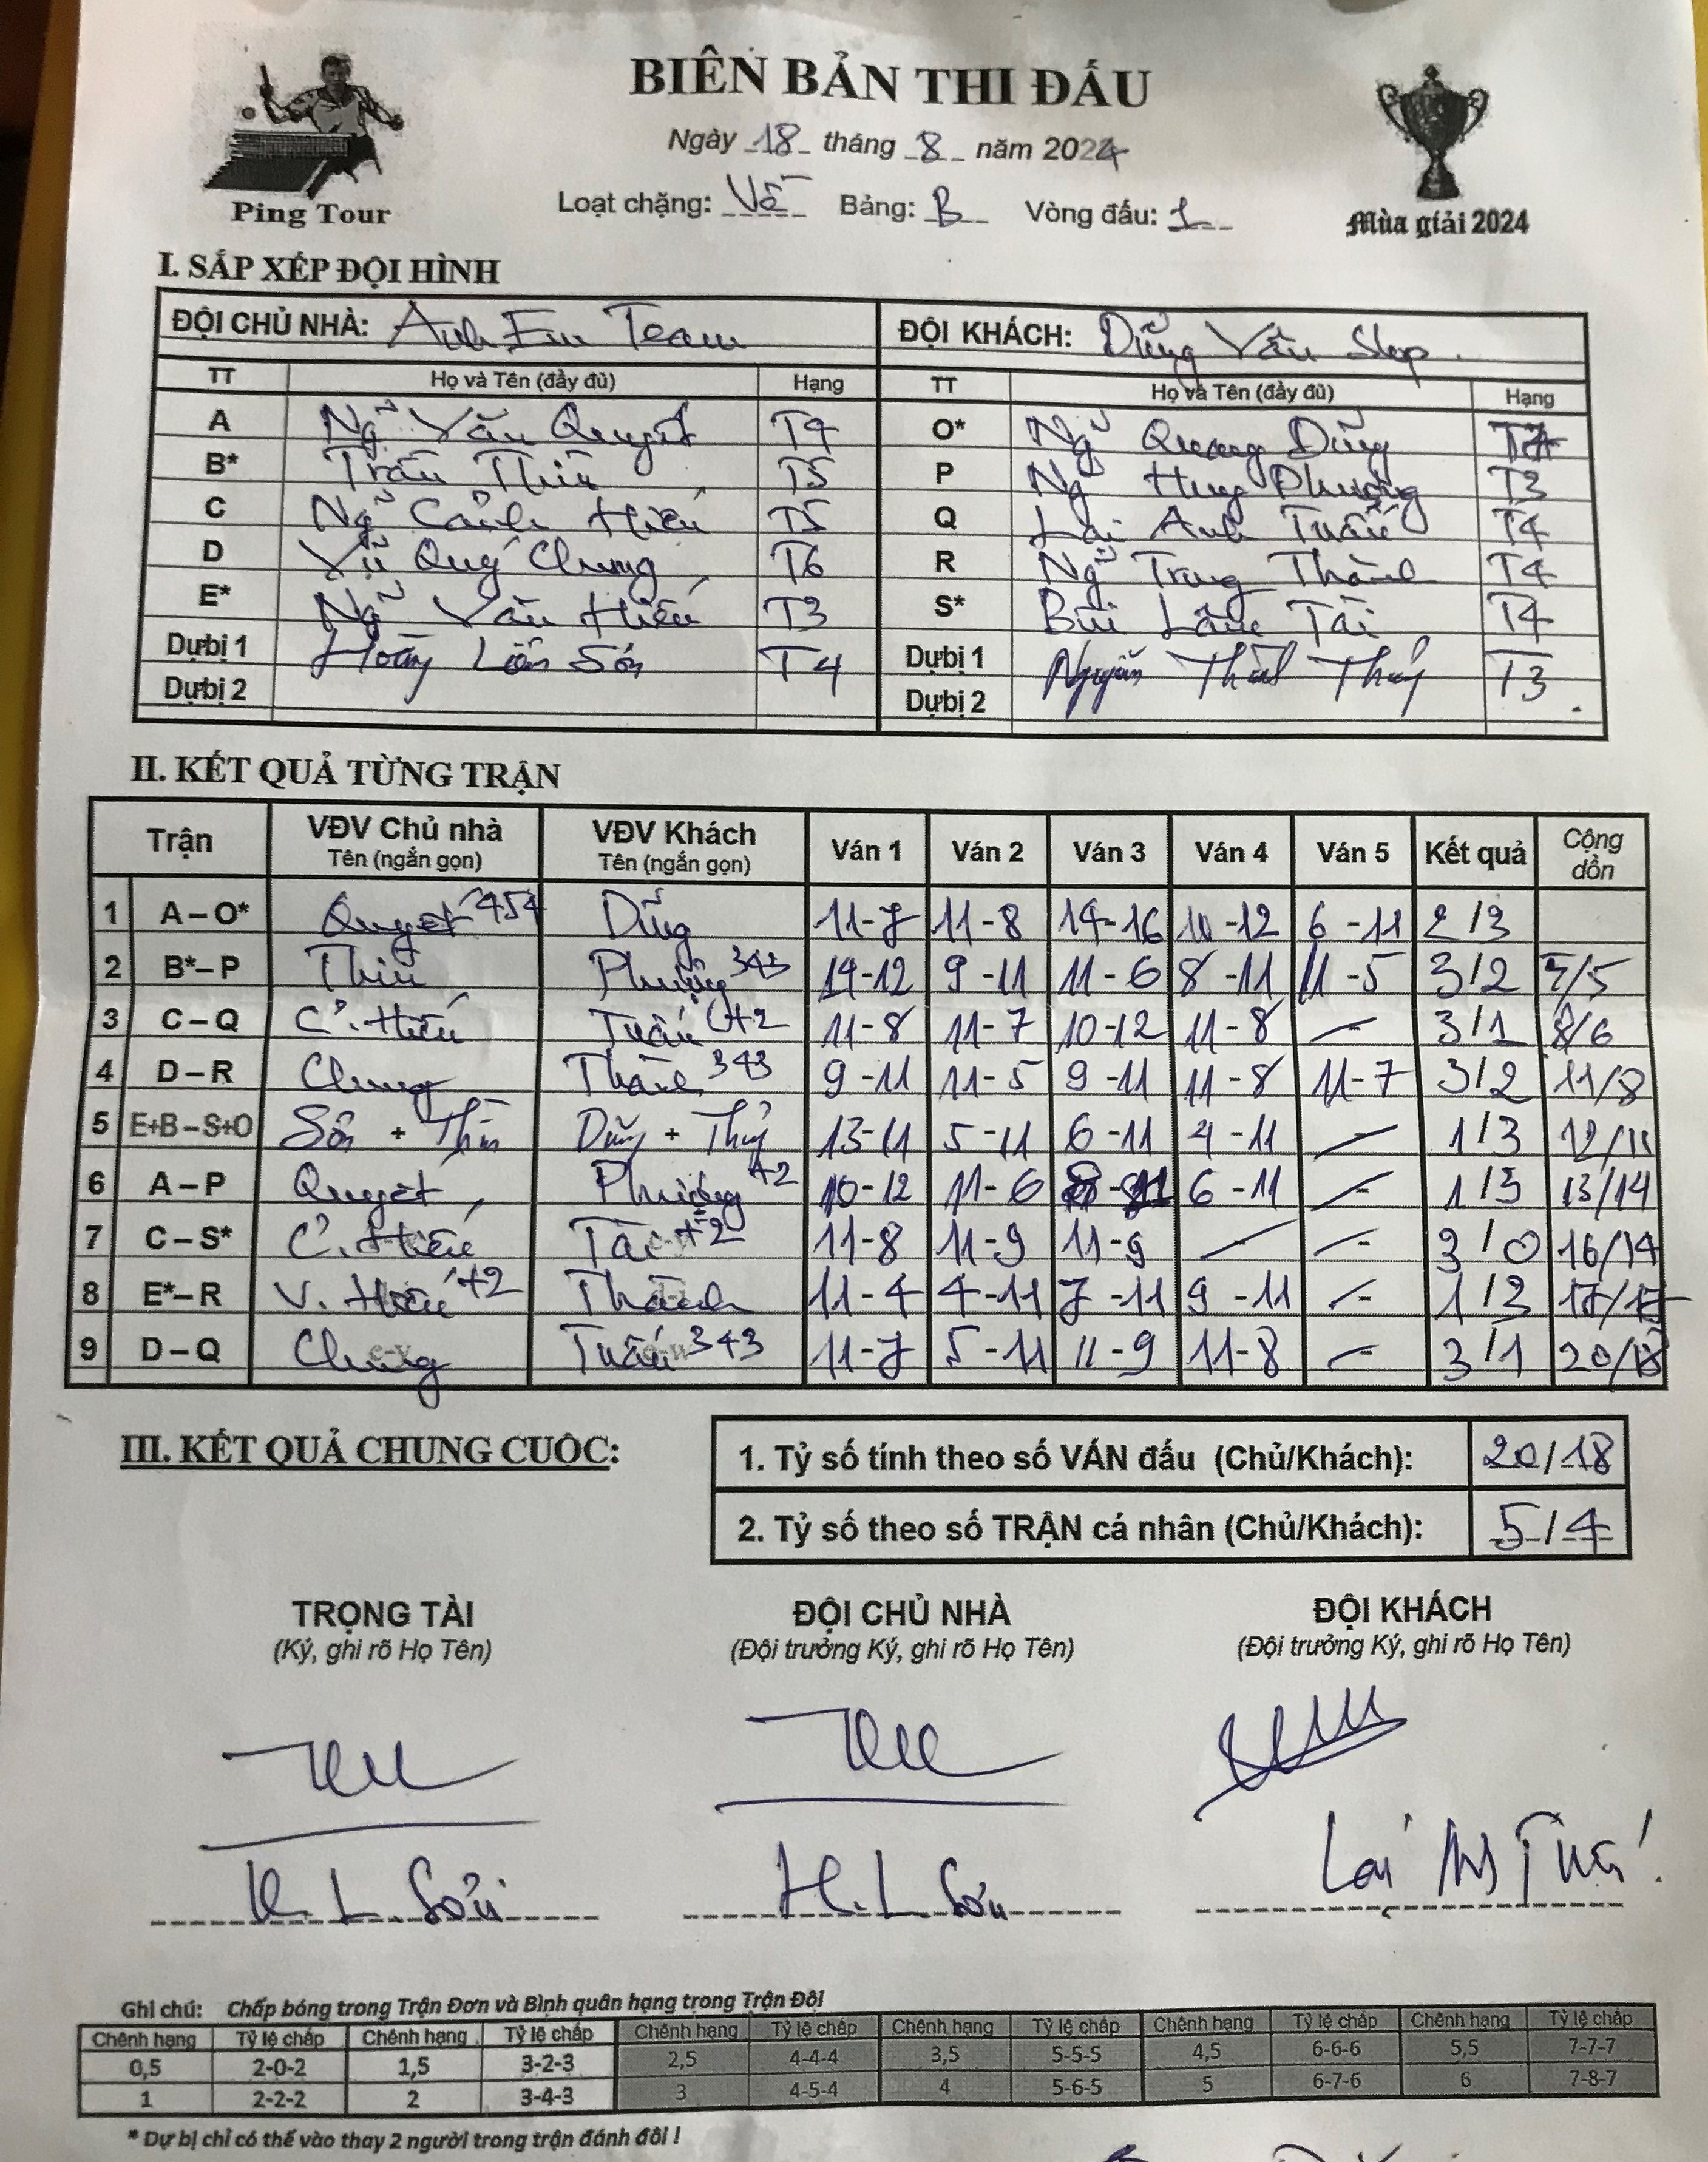 BIÊN BẢN THI ĐẤU
Ngày 18 tháng 8 năm 2024
Loạt chặng: Về Bảng: B Vòng đấu: 1
Ping Tour
Mùa giải 2024
I. SẮP XẾP ĐỘI HÌNH
ĐỘI CHỦ NHÀ: Anh Em Team ĐỘI KHÁCH: Dũng Vân Shop
TT Họ và Tên (đầy đủ) Hạng TT Họ và Tên (đầy đủ) Hạng
A Ng~ Văn Quyết T4 O* Ng~ Quang Dũng
B* Trần Thìn T5 P Ng~ Huy Phượng T3
C Ng~ Cảnh Hiếu T5 Q Lại Anh Tuấn T4
D Vũ Quý Chung T6 R Ng~ Trung Thành T4
E* Ng~ Văn Hiếu T3 S* Bùi Lâm Tài T4
Dự bị 1 Hoàng Liên Sơn T4 Dự bị 1 Nguyễn Thủy T3
Dự bị 2 Dự bị 2
II. KẾT QUẢ TỪNG TRẬN
Trận VĐV Chủ nhà Tên (ngắn gọn) VĐV Khách Tên (ngắn gọn) Ván 1 Ván 2 Ván 3 Ván 4 Ván 5 Kết quả Cộng dồn
1 A – O* Quyết 454 Dũng 11-7 11-8 14-16 10-12 6-11 2/3
2 B* – P Thìn Phượng 343 14-12 9-11 11-6 8-11 11-5 3/2 5/5
3 C – Q C. Hiếu Tuấn +2 11-8 11-7 10-12 11-8 - 3/1 8/6
4 D – R Chung Thành 343 9-11 11-5 9-11 11-8 11-7 3/2 11/8
5 E+B – S+O Sơn + Thìn Dũng + Thủy 13-11 5-11 6-11 4-11 - 1/3 12/11
6 A – P Quyết Phượng +2 10-12 11-6 6-11 - 1/3 13/14
7 C – S* C. Hiếu Tài +2 11-8 11-9 11-9 - - 3/0 16/14
8 E* – R V. Hiếu +2 Thành 11-4 4-11 7-11 9-11 - 1/3 17/17
9 D – Q Chung Tuấn 343 11-7 5-11 11-9 11-8 - 3/1 20/18
III. KẾT QUẢ CHUNG CUỘC:
1. Tỷ số tính theo số VÁN đấu (Chủ/Khách): 20/18
2. Tỷ số theo số TRẬN cá nhân (Chủ/Khách): 5/4
TRỌNG TÀI ĐỘI CHỦ NHÀ ĐỘI KHÁCH
(Ký, ghi rõ Họ Tên) (Đội trưởng Ký, ghi rõ Họ Tên) (Đội trưởng Ký, ghi rõ Họ Tên)
H. L. Sơn H. L Sơn Lại Anh Tuấn
Ghi chú: Chấp bóng trong Trận Đơn và Bình quân hạng trong Trận Đôi
Chênh hạng Tỷ lệ chấp Chênh hạng Tỷ lệ chấp Chênh hạng Tỷ lệ chấp Chênh hạng Tỷ lệ chấp Chênh hạng Tỷ lệ chấp Chênh hạng Tỷ lệ chấp
0,5 2-0-2 1,5 3-2-3 2,5 4-4-4 3,5 5-5-5 4,5 6-6-6 5,5 7-7-7
1 2-2-2 2 3-4-3 3 4-5-4 4 5-6-5 5 6-7-6 6 7-8-7
* Dự bị chỉ có thể vào thay 2 người trong trận đánh đôi !